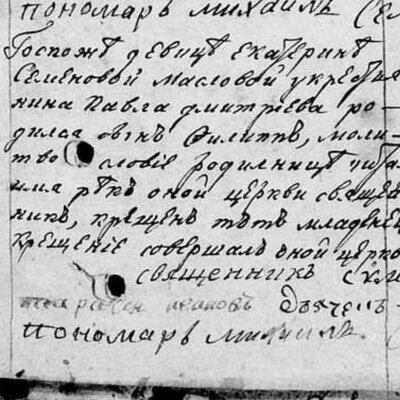 пономарь михаилъ Сем
Госпожѣ девицѣ екатеринѣ
Семеновой масловой у крестья
нина Павла дмитрева ро-
дился сынъ Филиппъ, моли-
тво словіе родилницѣ чита
има рѣкъ оной церкви священ
никъ, крещенъ тотъ младенец
крещеніе совершалъ оной церкв
священникъ
ивановъ Дьячекъ
пономарь михаилъ